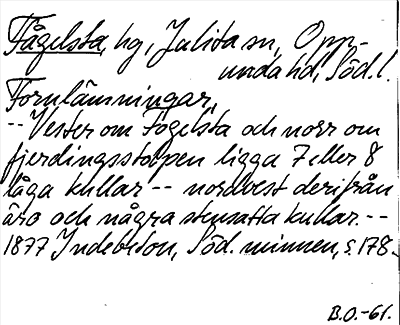 Fågelsta, hg, Julita sn, Opp-
unda hd, Söd.l.
Fornlämningar,
-- Vester om Fogelsta och norr om
fjerdingsstolpen ligga 7 eller 8
låga kullar -- nordvest derifrån
äro och några stensatta kullar. --
1877 Indebetou, Söd. minnen, s. 178.
B.O.-61.